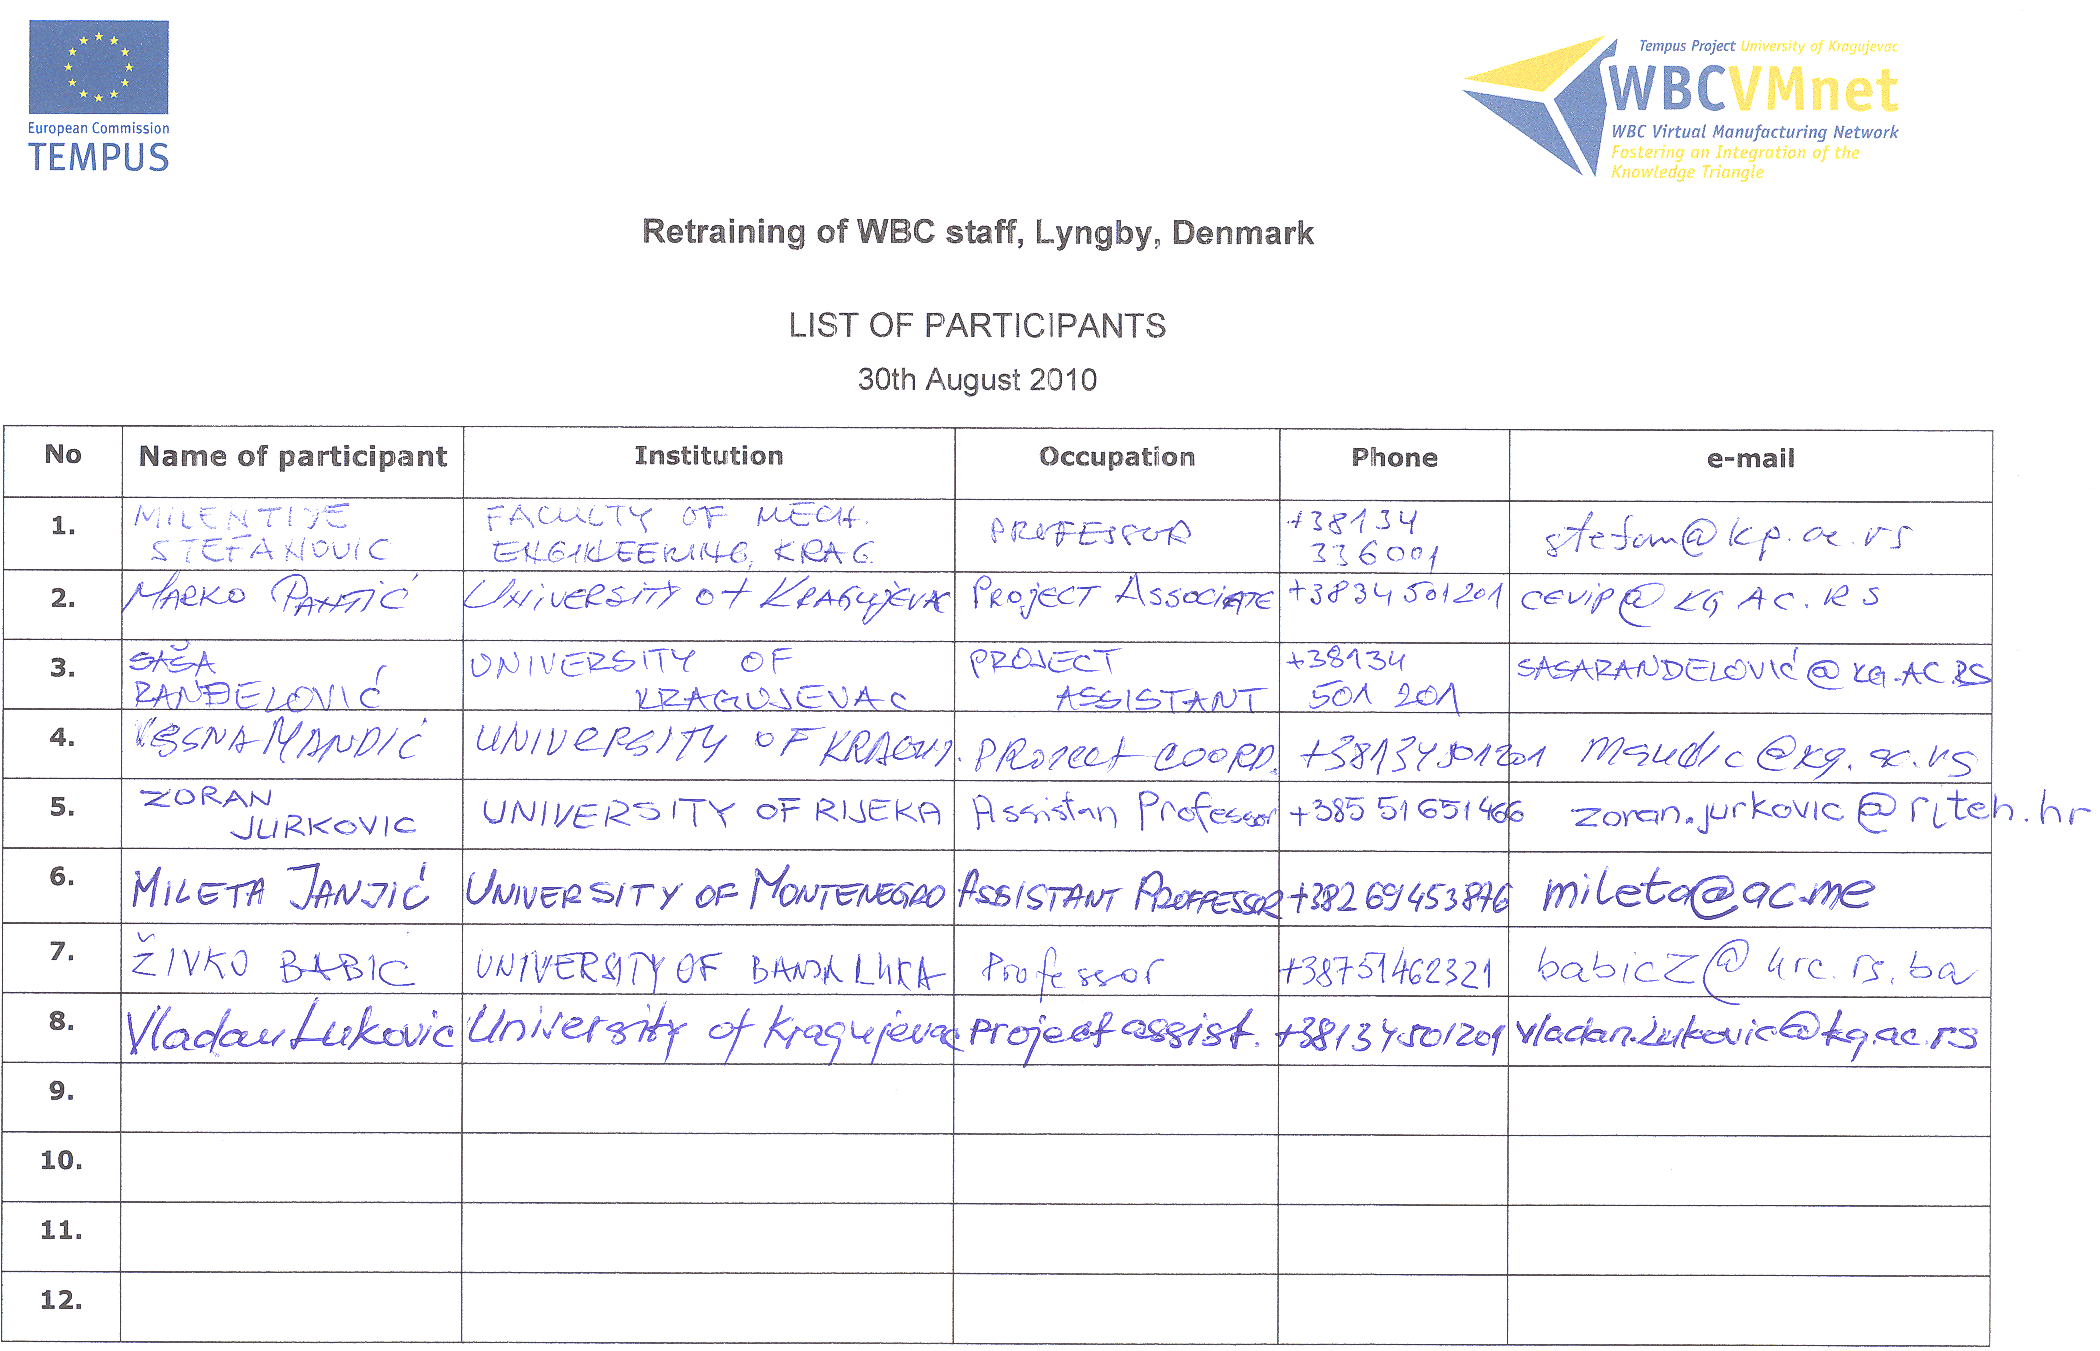 European Commission
TEMPUS
Tempus Project University of Kragujevac
WBCVMnet
WBC Virtual Manufacturing Network
Fostering an Integration of the
Knowledge Triangle
Retraining of WBC staff, Lyngby, Denmark
LIST OF PARTICIPANTS
30th August 2010
No Name of participant Institution Occupation Phone e-mail
1. MILENTIJE STEFANOVIC FACULTY OF MECH. ENGINEERING, KRAG. PROFESSOR +38134 336001 stefan@kp.ac.rs
2. MARKO PANTIĆ UNIVERSITY OF KRAGUJEVAC PROJECT ASSOCIATE +3834501201 CEVIP@KG AC.RS
3. SAŠA RANĐELOVIĆ UNIVERSITY OF KRAGUJEVAC PROJECT ASSISTANT +38134 501 201 SASARANDELOVIĆ@KG.AC.RS
4. VESNA MANDIĆ UNIVERSITY OF KRAGUJ. PROJECT COORD. +38134501201 mandic@kg.ac.rs
5. ZORAN JURKOVIC UNIVERSITY OF RIJEKA Assistan Professor +385 51 651 466 zoran.jurkovic@riteh.hr
6. MILETA JANJIĆ UNIVERSITY OF MONTENEGRO ASSISTANT PROFFESSOR +382 69 453 876 mileta@ac.me
7. ŽIVKO BABIC UNIVERSITY OF BANJA LUKA Professor +38751462321 babicz@urc.rs.ba
8. Vladan Lukovic University of Kragujevac Project assist. +38134501201 vladan.lukovic@kg.ac.rs
9.
10.
11.
12.